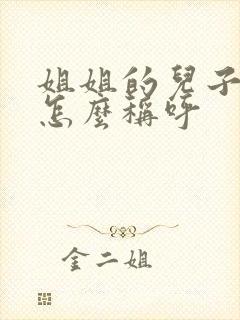 姐姐的兒子
怎麼稱呼
金二姐